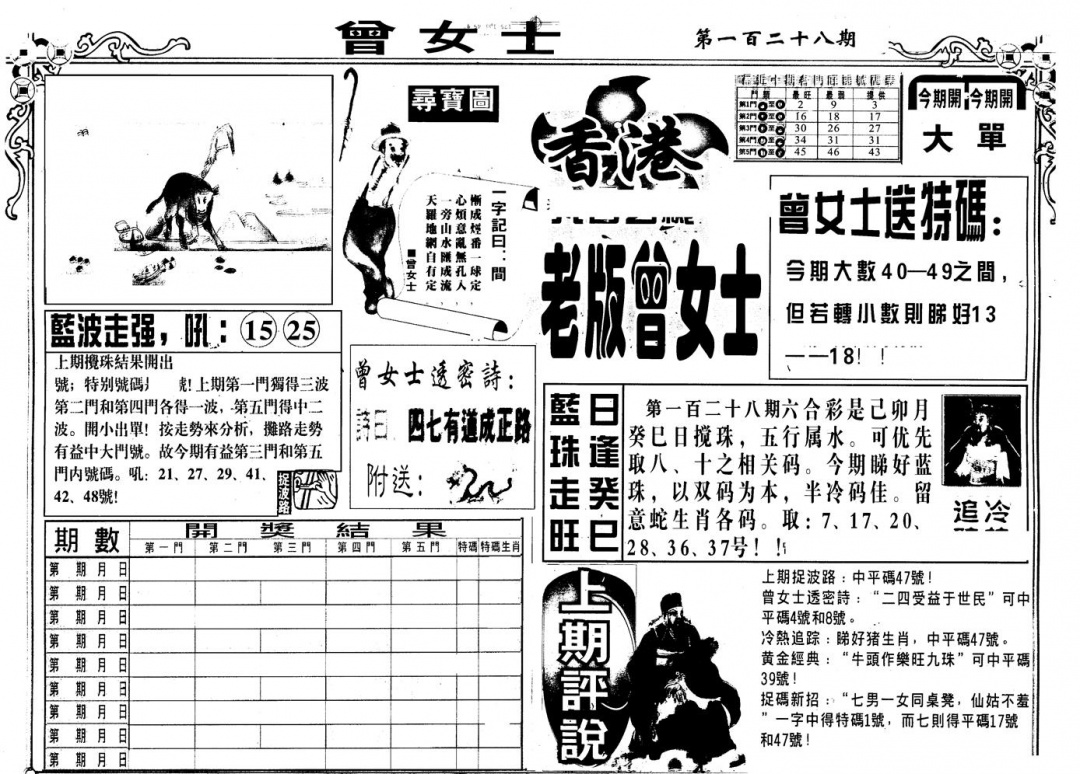 曾女士
第一百二十八期
尋寶圖
一字記曰：間
慚成煙番一球定
心煩意亂無孔入
一旁山水匯成流
天羅地網自有定
■曾女士
香港
老版曾女士
門類 最旺 最弱 提供
第1門 至 2 9 3
第2門 至 16 18 17
第3門 至 30 26 27
第4門 至 34 31 31
第5門 至 45 46 43
今期開 今期開
大單
曾女士送特碼：
今期大數40—49之間，
但若轉小數則睇好13
——18！！
藍波走强，吼：15 25
上期攪珠結果開出
號；特别號碼 號!上期第一門獨得三波
第二門和第四門各得一波，第五門得中二
波。開小出單！按走勢來分析，攤路走勢
有益中大門號。故今期有益第三門和第五
門内號碼。吼：21、27、29、41、
42、48號!
捉波路
曾女士透密詩：
詩曰 四七有道成正路
附送：
藍珠走旺
日逢癸巳
第一百二十八期六合彩是己卯月
癸巳日搅珠，五行属水。可优先
取八、十之相关码。今期睇好蓝
珠，以双码为本，半冷码佳。留
意蛇生肖各码。取：7、17、20、
28、36、37号！！
追冷
期數 開獎結果
第一門 第二門 第三門 第四門 第五門 特碼 特碼生肖
第 期 月 日
第 期 月 日
第 期 月 日
第 期 月 日
第 期 月 日
第 期 月 日
第 期 月 日
第 期 月 日
第 期 月 日
上期評說
上期捉波路：中平碼47號！
曾女士透密詩：“二四受益于世民”可中
平碼4號和8號。
冷熱追踪：睇好猪生肖，中平碼47號。
黄金經典：“牛頭作樂旺九珠”可中平碼
39號！
捉碼新招：“七男一女同桌凳，仙姑不羞
”一字中得特碼1號，而七則得平碼17號
和47號！